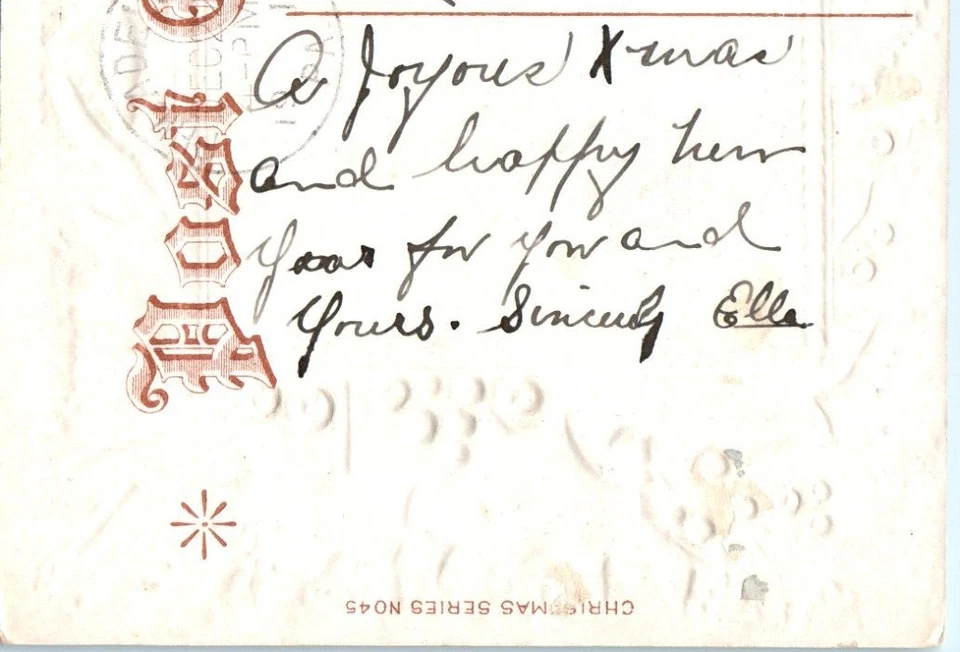 A Joyous Xmas
and happy new
Year for you and
Yours. Sincerely Ella
Post
CHRISTMAS SERIES NO45